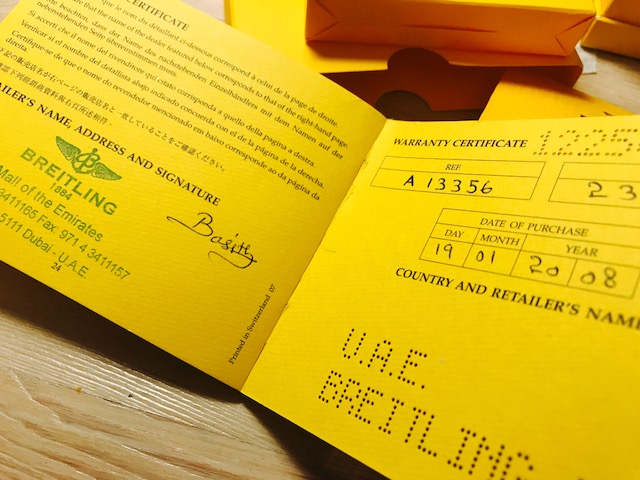 CERTIFICATE
que le nom du détaillant ci-dessous correspond à celui de la page de droite.
that the name of the dealer featured below corresponds to that of the right-hand page.
beachten, dass der Name des nachstehenden Einzelhändlers mit dem Namen auf der
nebenstehenden Seite übereinstimmen muss.
Si accerti che il nome del rivenditore qui citato corrisponda a quello della pagina a destra.
Verificar si el nombre del detallista abajo indicado concuerda con el de la página de la derecha.
Certifique-se de que o nome do revendedor mencionado em baixo corresponde ao da página da
direita.
RETAILER'S NAME, ADDRESS AND SIGNATURE
B
BREITLING
1884
Mall of the Emirates
3411165 Fax 971 4 3411157
5111 Dubai - U.A.E.
24
Basith
Printed in Switzerland 07
WARRANTY CERTIFICATE
1225
REF.
A 13356
23
DATE OF PURCHASE
DAY MONTH YEAR
19 01 20 08
COUNTRY AND RETAILER'S NAME
U.A.E.
BREITLING